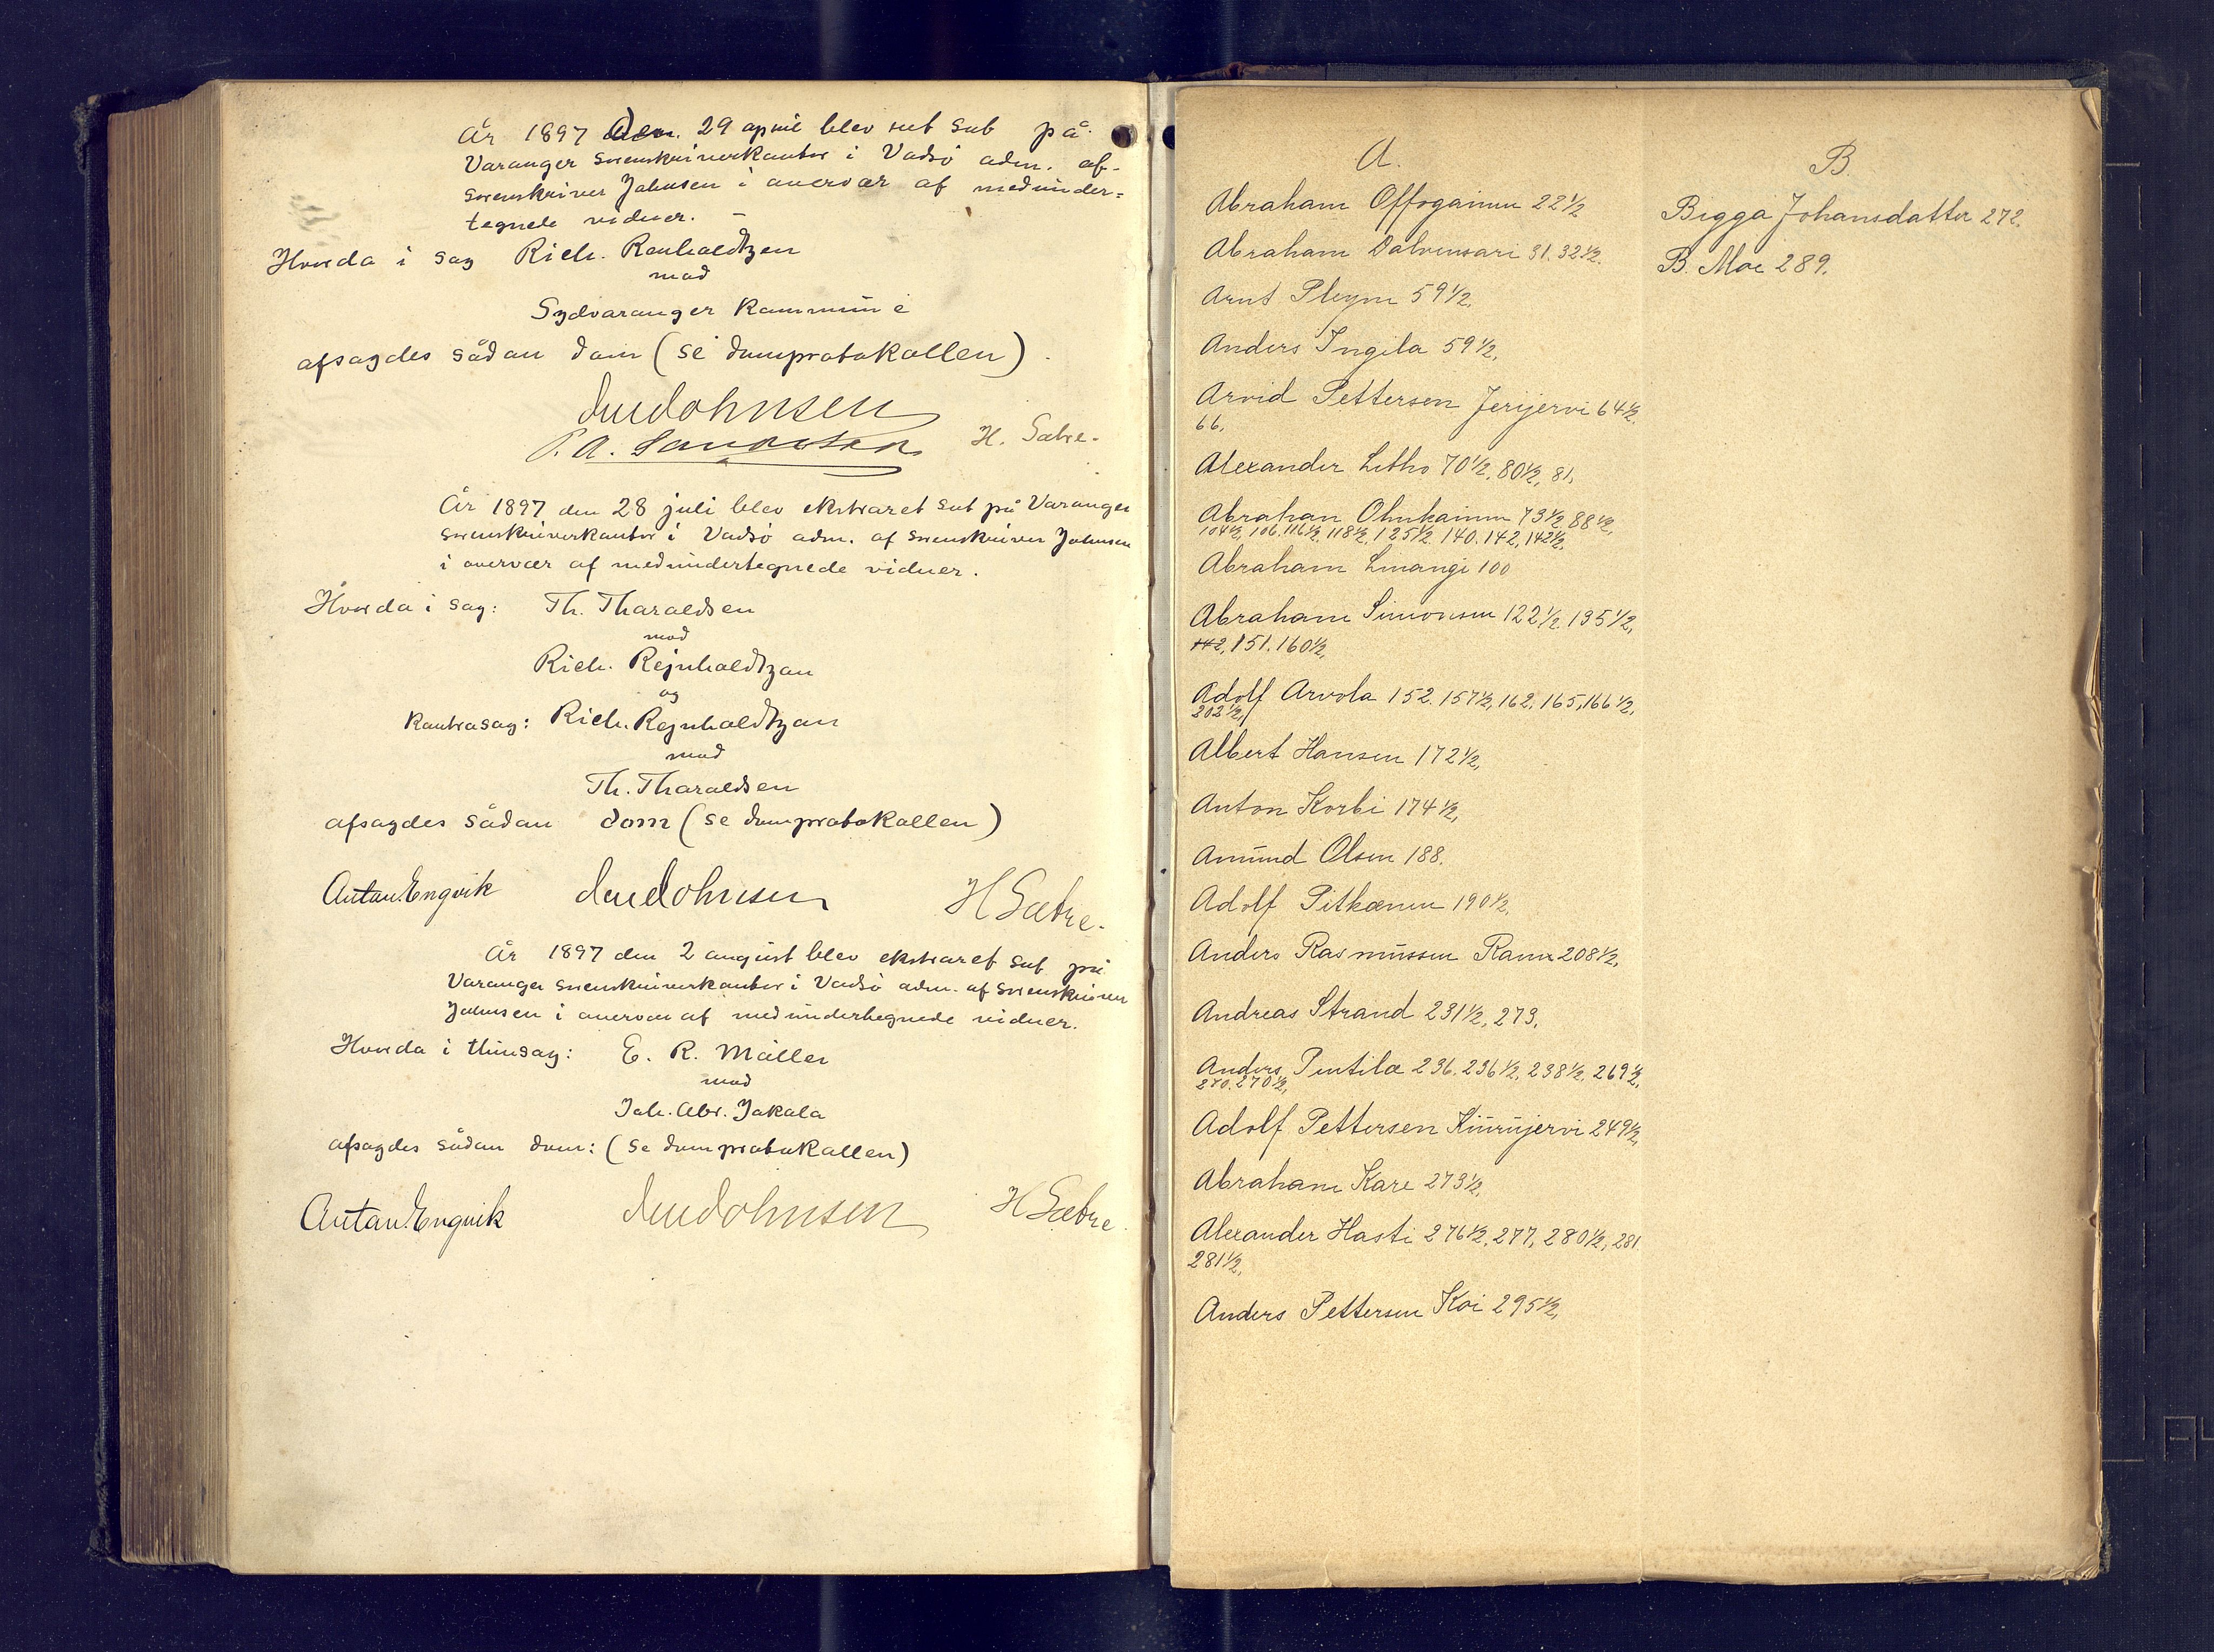 År 1897 den 29 april blev ret sat på
Varanger sorenskriverkontor i Vadsö adm. af
sorenskriver Johnsen i overvær af medunder=
tegnede vidner. –
Hvorda i sag Rich. Ronholdtzen
mod
Sydvaranger kommune
afsagdes sådan dom (se domprotokollen).
Johnsen
H. Sætre.
År 1897 den 28 juli blev ekstraret sat på Varanger
sorenskriverkontor i Vadsö adm. af sorenskriver Johnsen
i overvær af medundertegnede vidner.
Hvorda i sag: Th. Tharaldsen
mod
Rich. Rejnholdtzen
og
Kontrasag: Rich. Rejnholdtzen
mod
Th. Tharaldsen
afsagdes sådan dom (se domprotokollen)
Anton Engvik Johnsen H Sætre.
År 1897 den 2 august blev ekstraret sat på
Varanger sorenskriverkontor i Vadsö adm. af sorenskriver
Johnsen i overvær af medundertegnede vidner.
Hvorda i thinsag: E. R. Möller
mod
Joh. Abr. Jakola
afsagdes sådan dom: (se domprotokollen)
Anton Engvik Johnsen H Sætre.
A.
Abraham Offogainen 22½
Abraham Dalvensari 31. 32½.
Arnt Pleym 59½.
Anders Ingila 59½.
Arvid Pettersen Jerijervi 64½.
66.
Alexander Litho 70½, 80½, 81.
Abrahan Ohnkainen 73½ 88½,
104½, 106. 116½. 118½. 125½. 140. 142, 142½.
Abraham Linangi 100
Abraham Simonsen 122½. 135½.
142, 151. 160½.
Adolf Arvola 152. 157½, 162. 165, 166½.
202½,
Albert Hansen 172½.
Anton Korbi 174½.
Amund Olsen 188.
Adolf Pitkænen 190½.
Anders Rasmussen Rann 208½.
Andreas Strand 231½, 273.
Anders Pentila 236. 236½, 238½. 269½.
270. 270½,
Adolf Pettersen Kürujervi 249½.
Abraham Kare 273½.
Alexander Hasti 276½, 277, 280½, 281
281½.
Anders Pettersen Koi 295½.
B.
Bigga Johansdatter 272.
B. Moe 289.